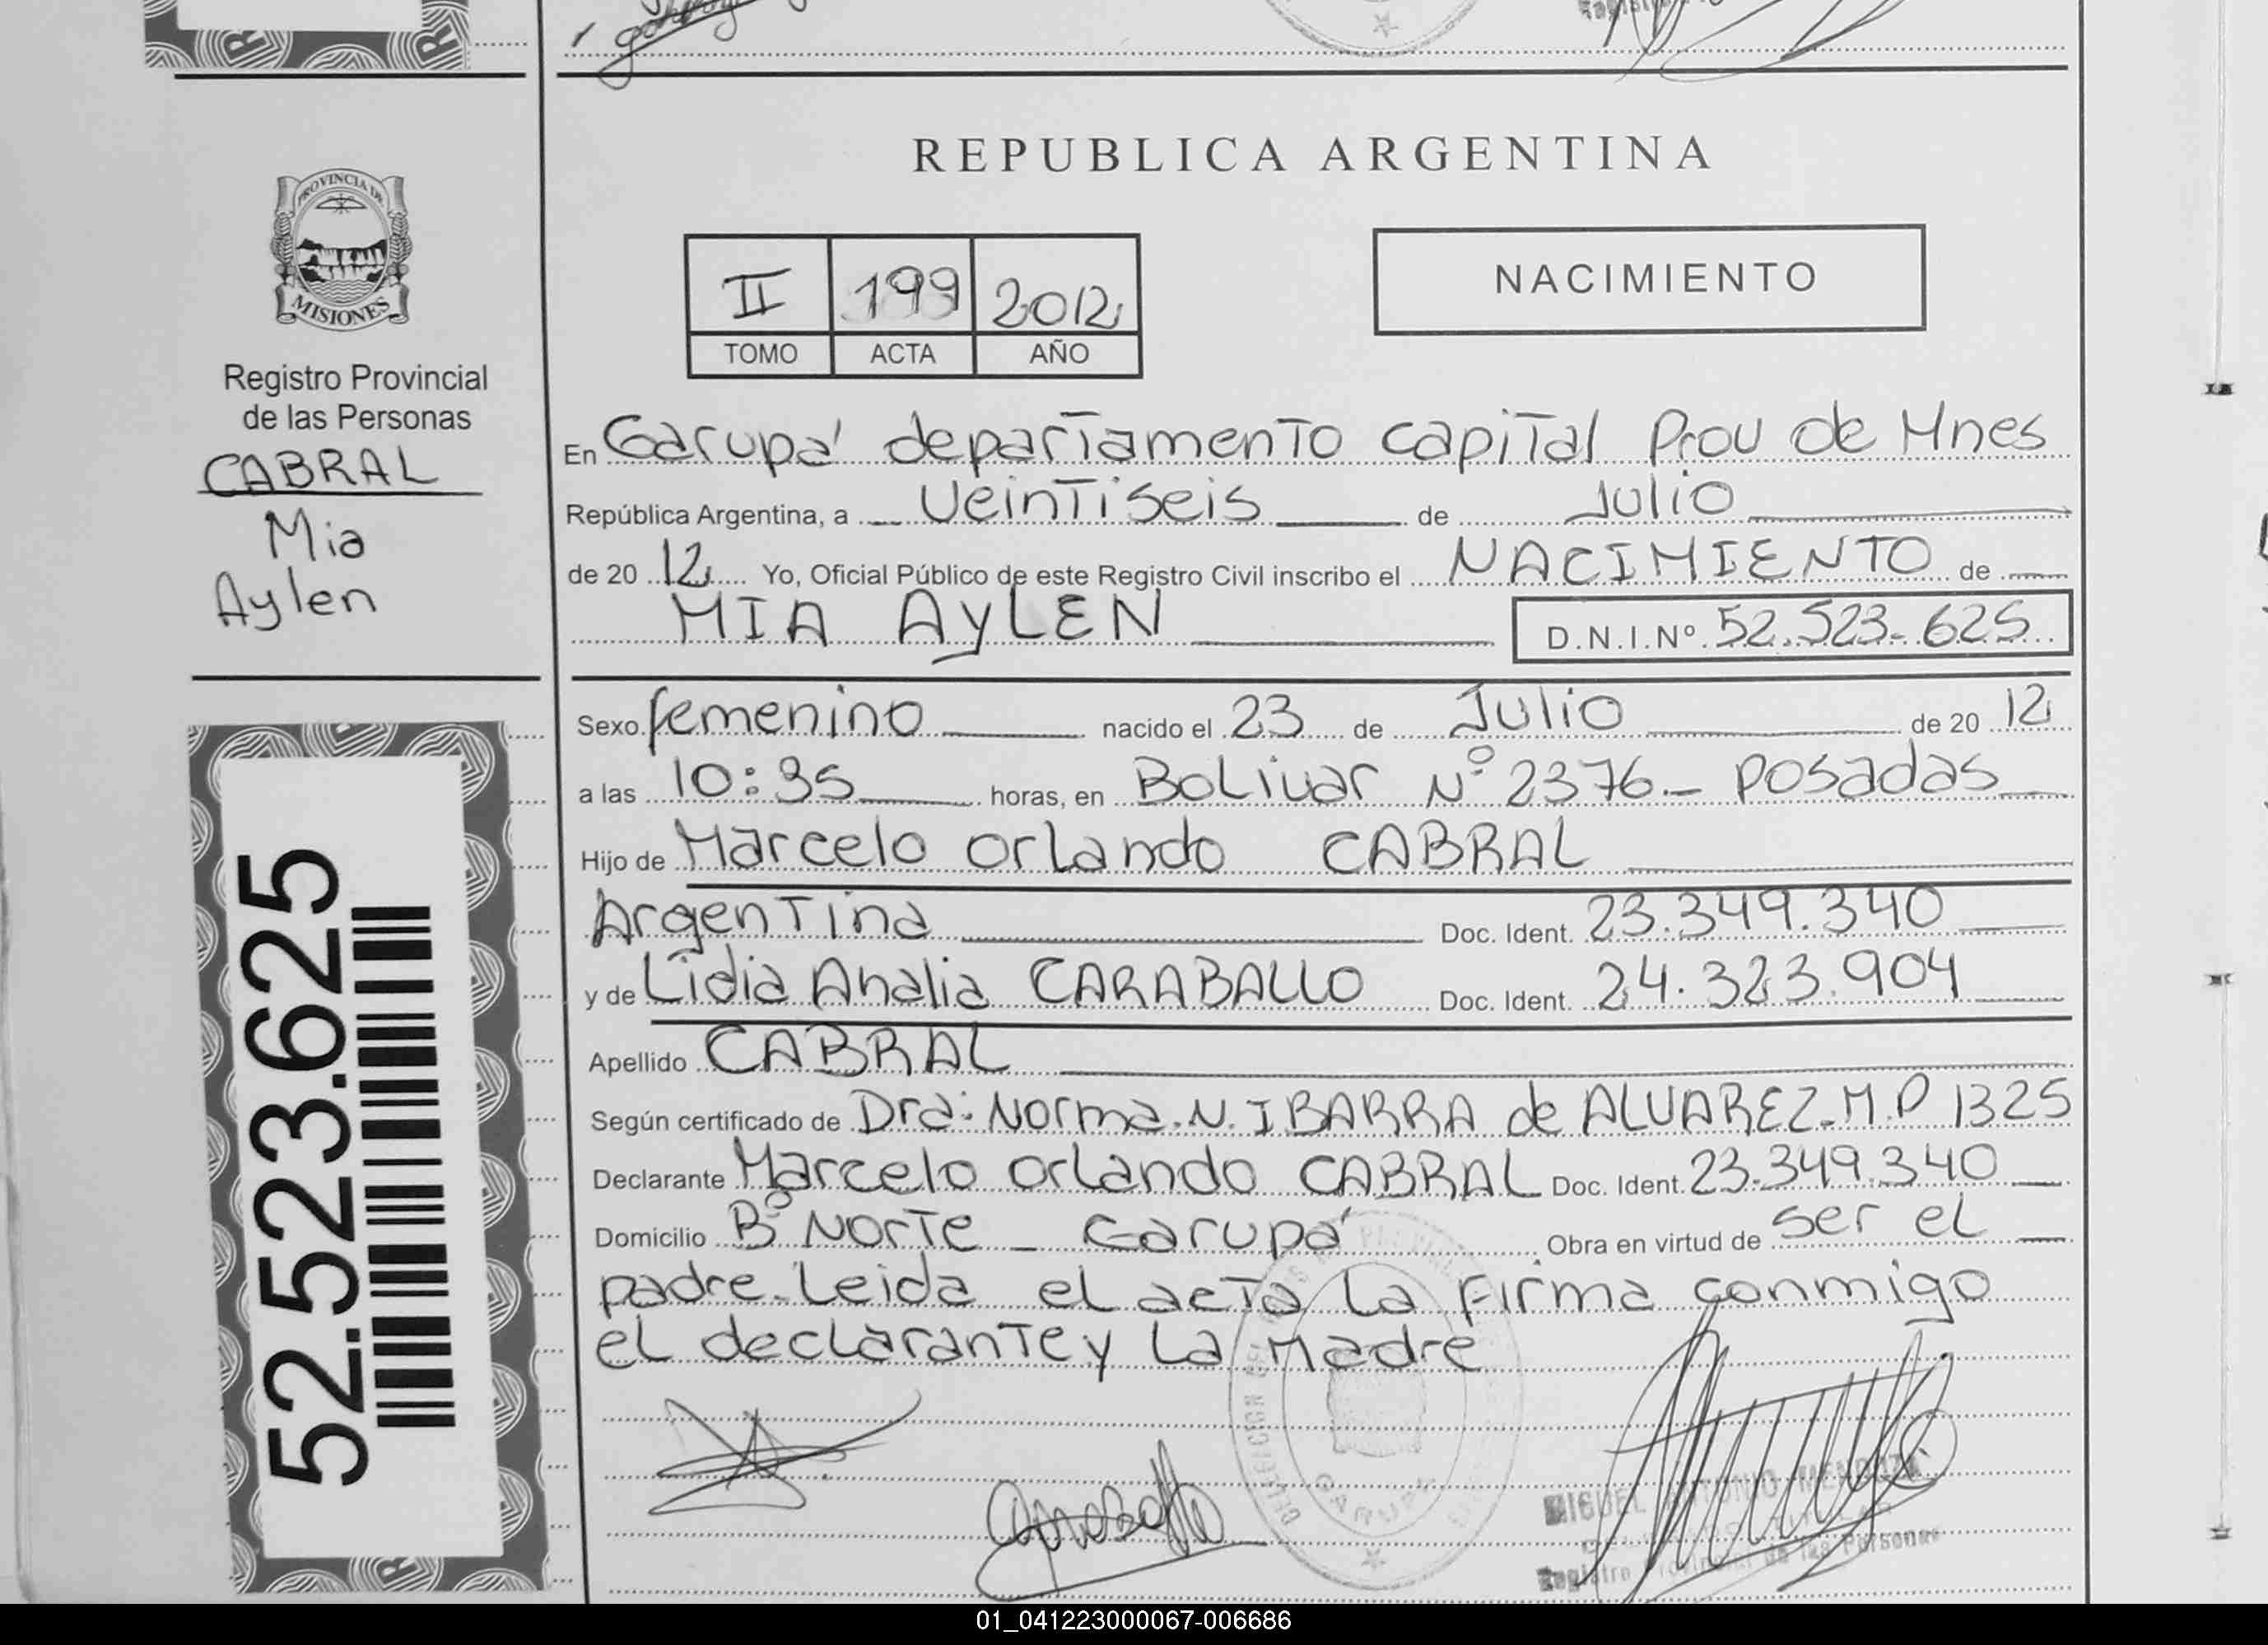 REPUBLICA ARGENTINA
PROVINCIA DE
MISIONES
Registro Provincial
de las Personas
CABRAL
Mia
Aylen
II 199 2012
TOMO ACTA AÑO
NACIMIENTO
En Garupa' departamento capital Prov de Mnes
República Argentina, a veintiseis de Julio
de 20 12 Yo, Oficial Público de este Registro Civil inscribo el NACIMIENTO de
MIA AyLEN D.N.I.Nº 52.523.625
Sexo femenino nacido el 23 de Julio de 20 12
a las 10:35 horas, en Bolivar Nº 2376 - posadas
Hijo de Marcelo Orlando CABRAL
Argentina Doc. Ident. 23.349.340
y de Lidia Analia CARABALLO Doc. Ident. 24.323.904
Apellido CABRAL
Según certificado de Dra: Norma.N. IBARRA de ALVAREZ.M.P 1325
Declarante Marcelo Orlando CABRAL Doc. Ident. 23.349.340
Domicilio Bº Norte - Garupa' Obra en virtud de ser el
padre. Leida el acta la firma conmigo
el declarante y la Madre
52.523.625
MIGUEL ANTONIO MENDOZA
Registro Provincial de las Personas
GARUPA
01_041223000067-006686